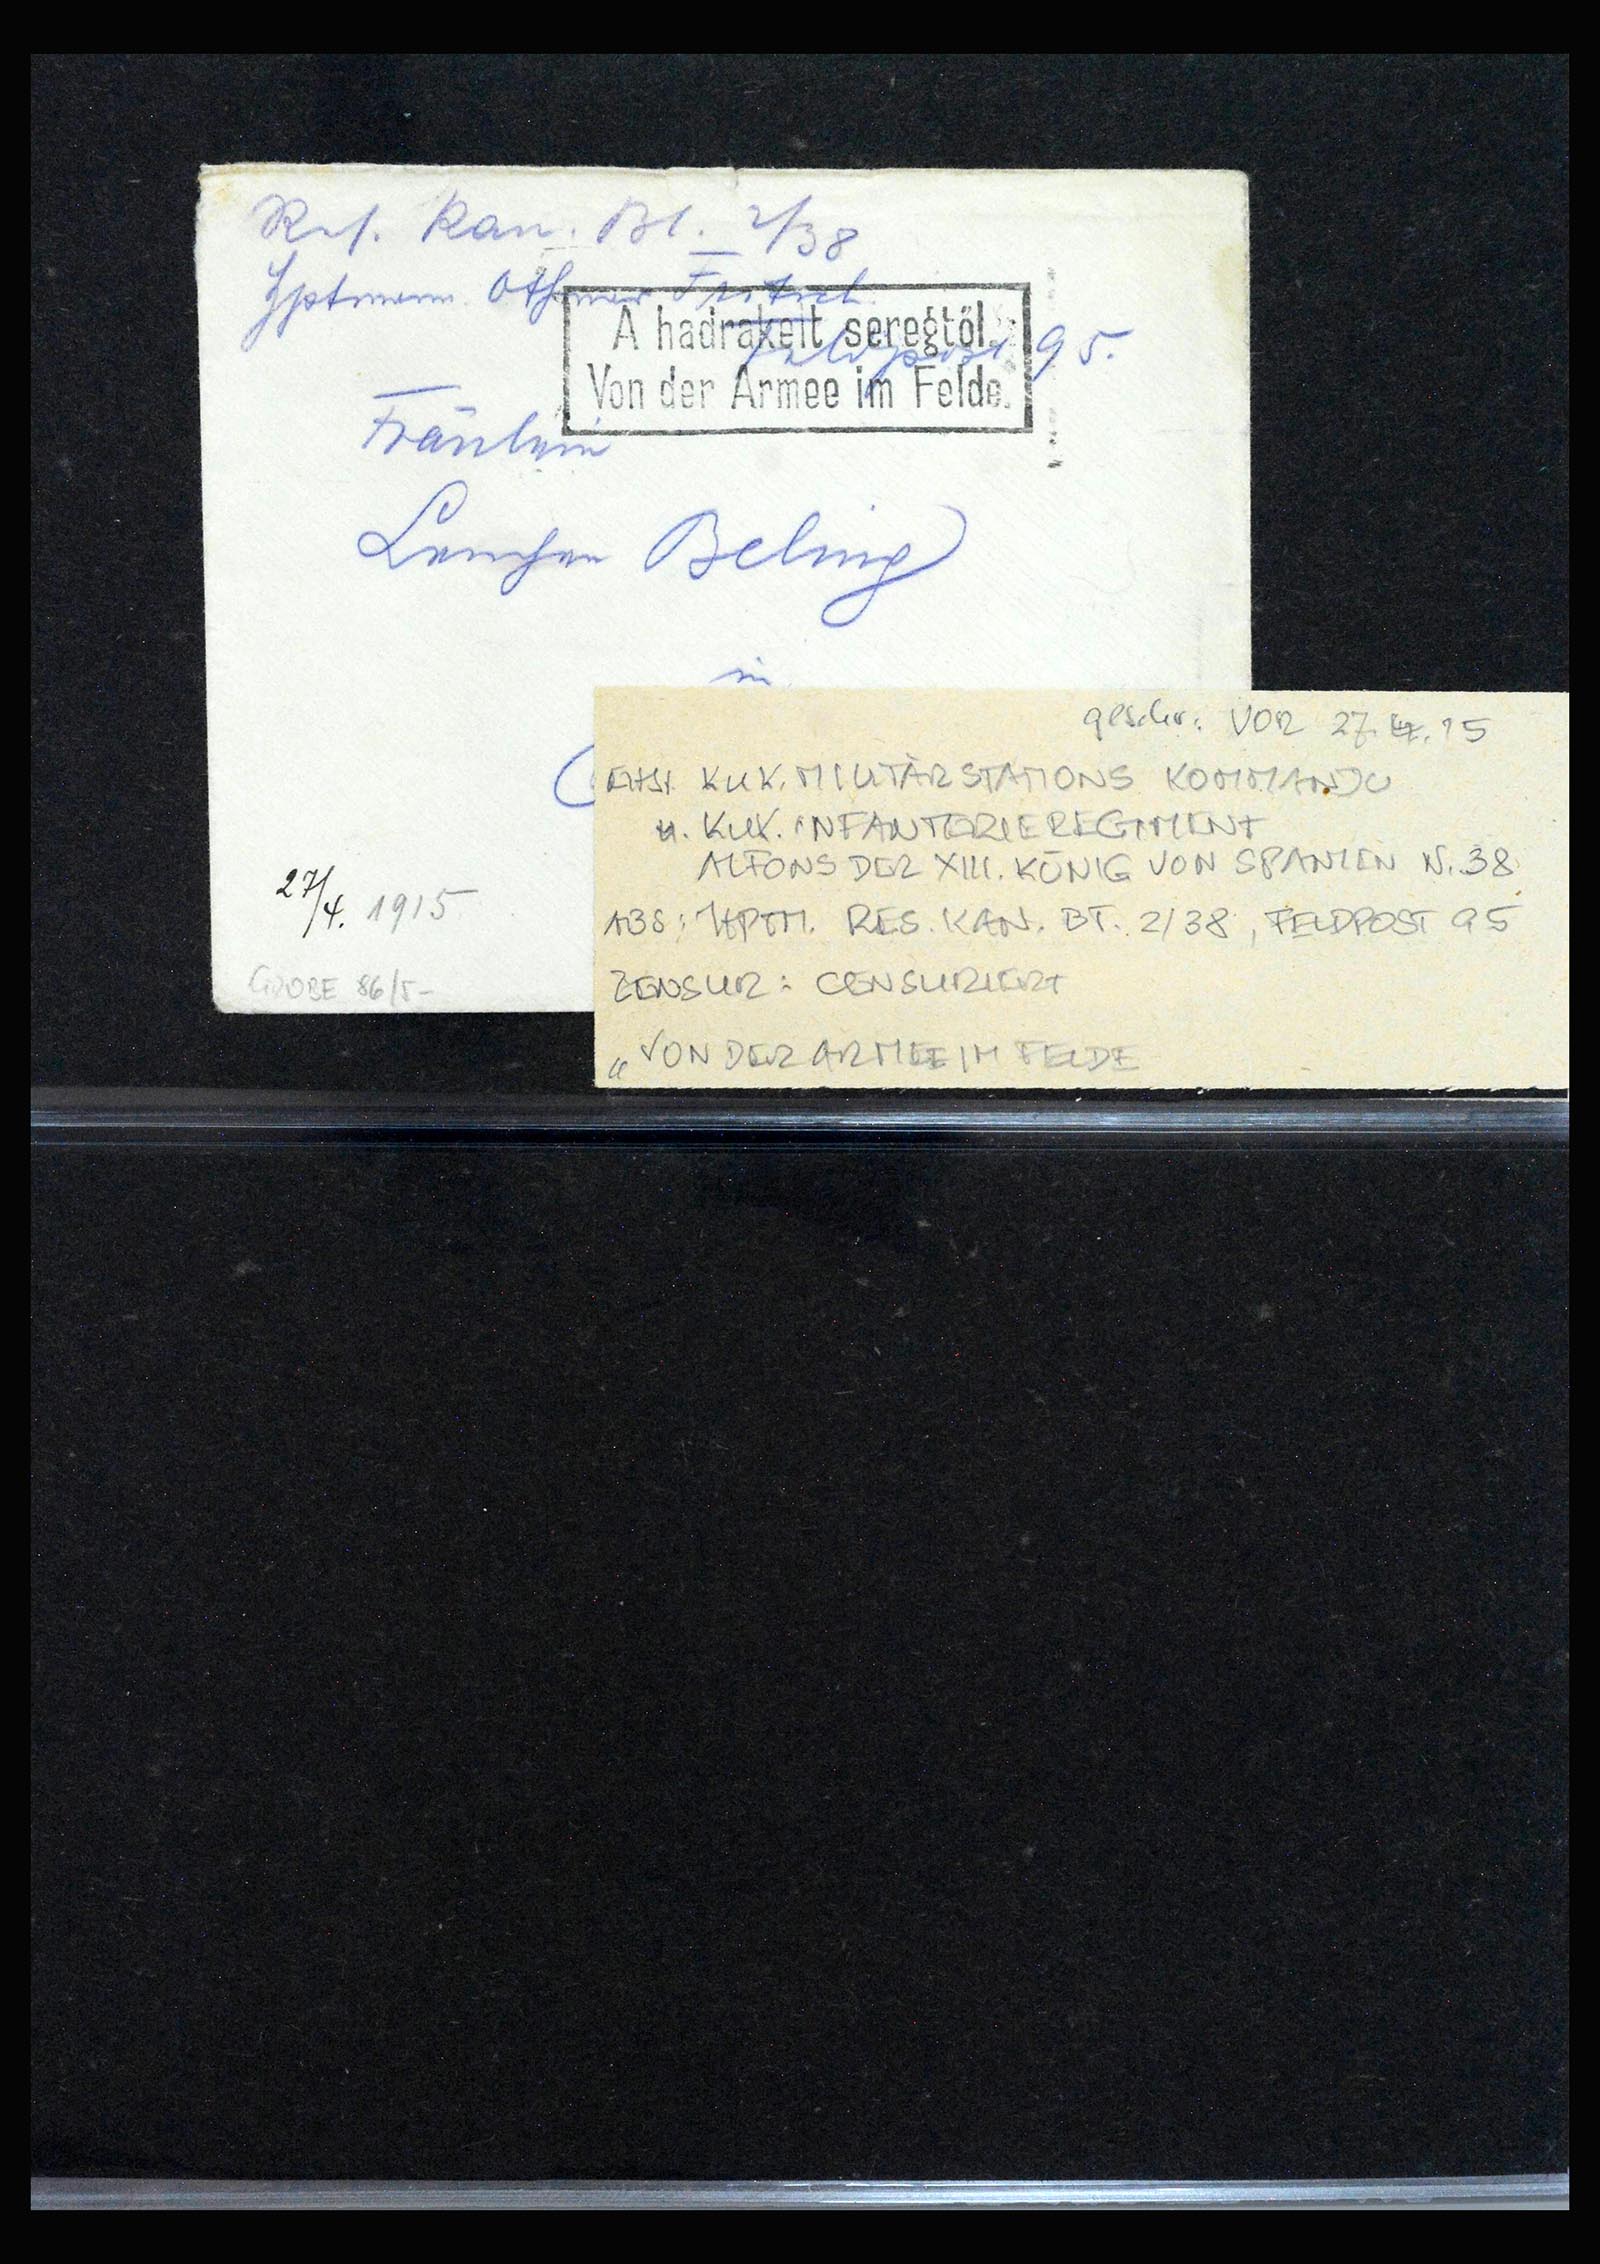 Res. Kan. Bt. 2/38
Hptmann Othmar Fritsch
Feldpost 95.
A hadrakelt seregtől.
Von der Armee im Felde.
Fräulein
Lenchen Beling
in
27/4. 1915
GROBE 86/5-
geschr. VOR 27. 4. 15
KUK. MILITÄRSTATIONS KOMMANDO
u. KUK. INFANTERIEREGIMENT
ALFONS DER XIII. KÖNIG VON SPANIEN N. 38
ABS: HPTM. RES. KAN. BT. 2/38, FELDPOST 95
ZENSUR: CENSURIERT
„VON DER ARMEE IM FELDE